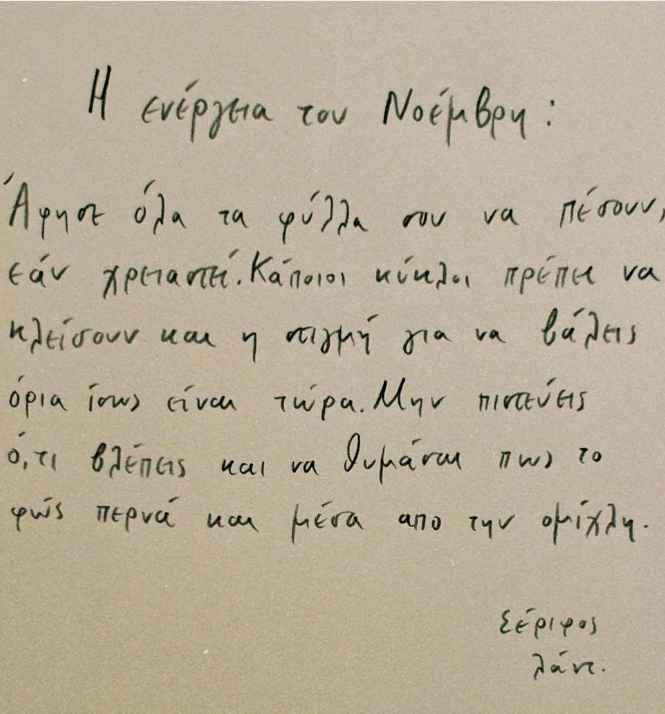 Η ενέργεια του Νοέμβρη:
Άφησε όλα τα φύλλα σου να πέσουν,
εάν χρειαστεί. Κάποιοι κύκλοι πρέπει να
κλείσουν και η στιγμή για να βάλεις
όρια ίσως είναι τώρα. Μην πιστεύεις
ό,τι βλέπεις και να θυμάσαι πως το
φώς περνά και μέσα απο την ομίχλη.
Σέριφος
λάντ.